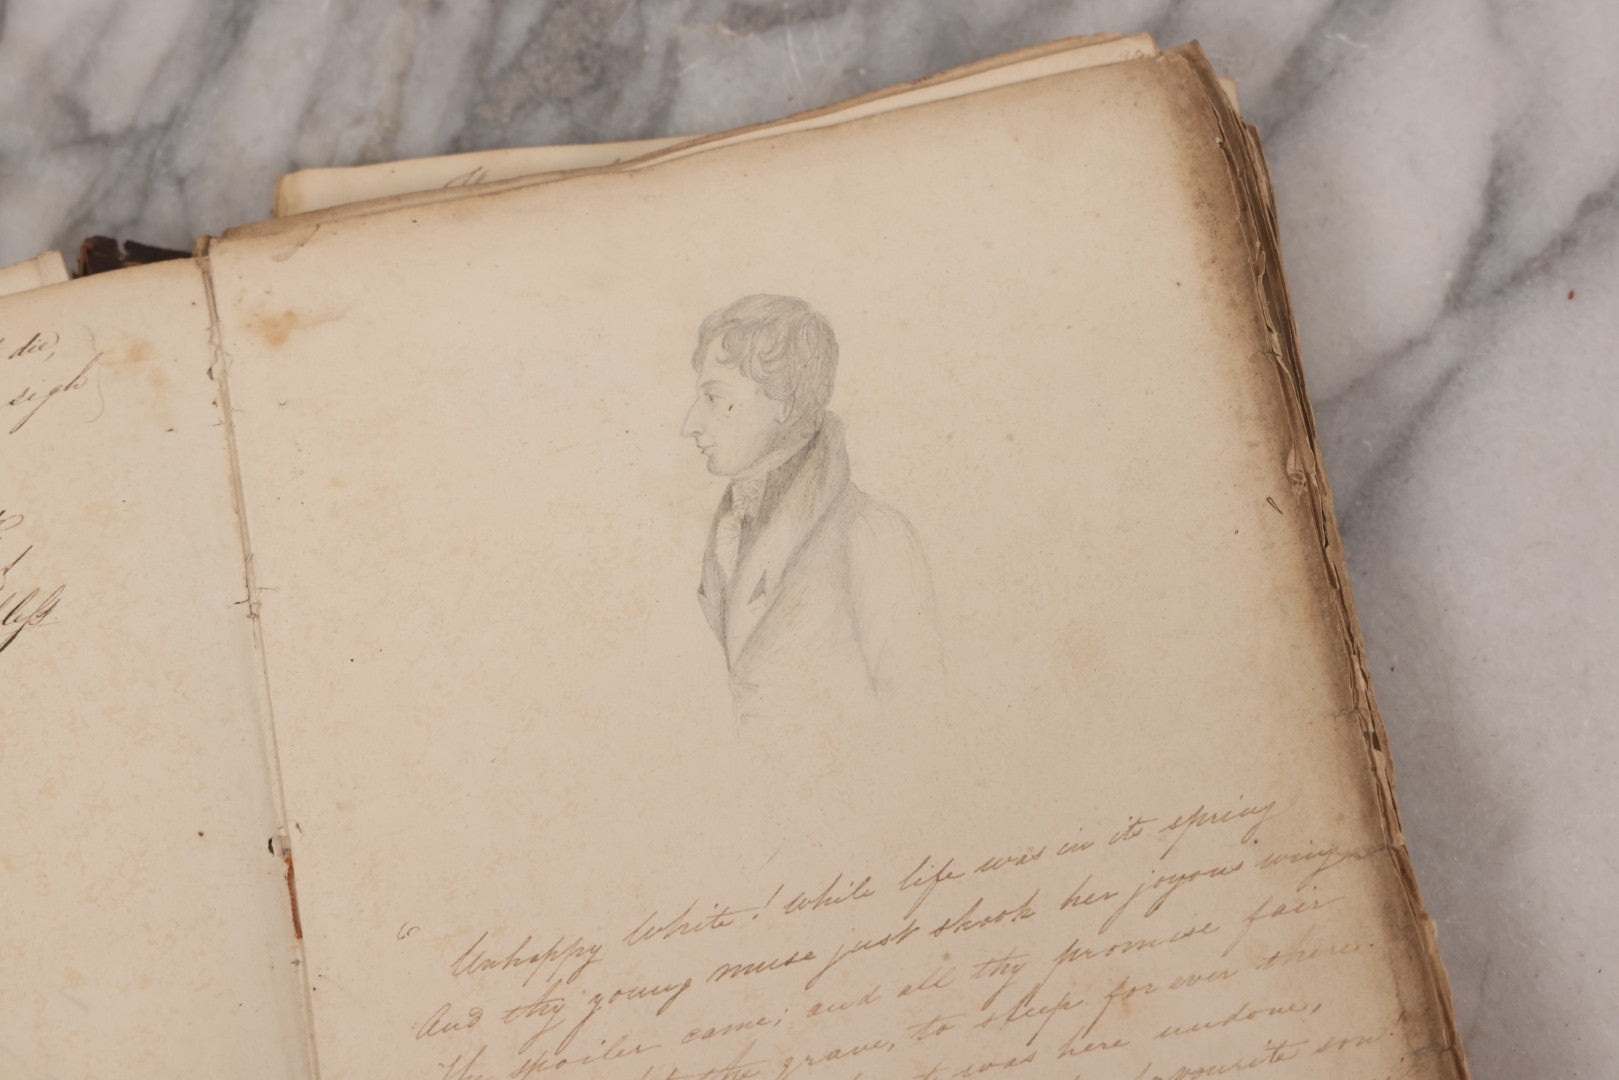 die,
sigh
"Unhappy White! while life was in its spring
And thy young muse just shook her joyous wing
The spoiler came; and all thy promise fair
the grave, to sleep for ever there.
was here undone,
favourite son!